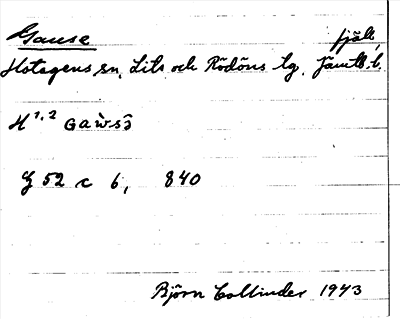 Gause fjäll,
Hotagens sn, Lits och Rödöns tg. Jämtl. l.
H 1,2 Gàwsɜ̑
Z 52 c 6, 840
Björn Collinder 1943